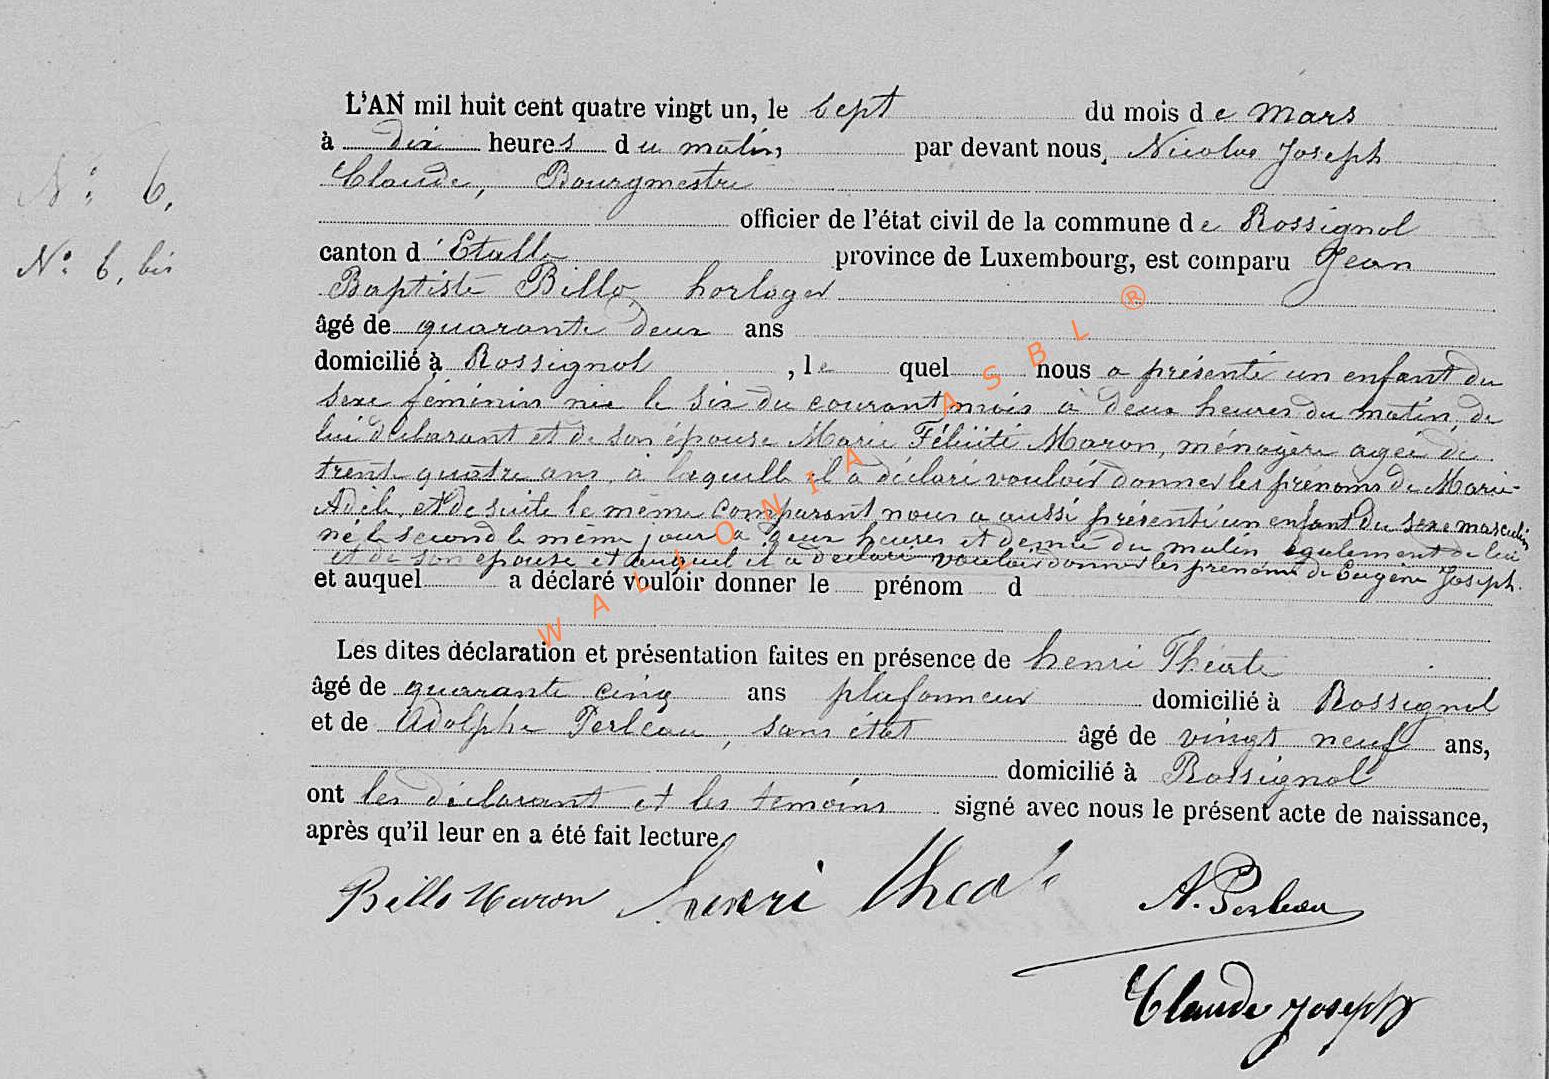 N° 6,
N° 6, bis
L'AN mil huit cent quatre vingt un, le sept du mois de mars
à dix heures du matin, par devant nous, Nicolas Joseph
Claude, Bourgmestre
officier de l'état civil de la commune de Rossignol
canton d'Etalle province de Luxembourg, est comparu Jean
Baptiste Bille, horloger
âgé de quarante deux ans
domicilié à Rossignol, lequel nous a présenté un enfant du
sexe féminin née le six du courant mois à deux heures du matin, de
lui déclarant et de son épouse Marie Félicité Maron, ménagère agée de
trente quatre ans, à laquelle il a déclaré vouloir donner les prénoms de Marie-
Adèle, et de suite le même comparant nous a aussi présenté un enfant du sexe masculin
né le second le même jour à deux heures et demie du matin également de lui
et de son epouse et auquel il a déclaré vouloir donner les prénoms de Eugène Joseph.
et auquel a déclaré vouloir donner le prénom d
Les dites déclaration et présentation faites en présence de henri Théate
âgé de quarante cinq ans plafonneur domicilié à Rossignol
et de Adolphe Perleau, sans état âgé de vingt neuf ans,
domicilié à Rossignol
ont les déclarant et les temoins signé avec nous le présent acte de naissance,
après qu'il leur en a été fait lecture.
Bille Maron henri Theate A. Perleau
Claude Joseph
WALLONIA ASBL ®